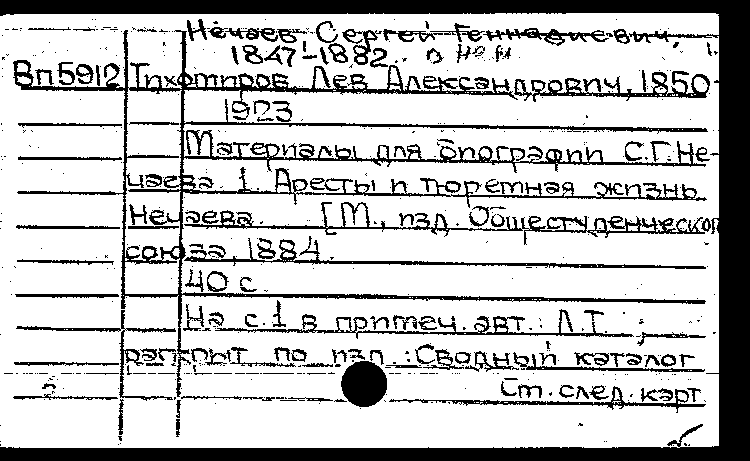 Нечаев Сергей Геннадиевич,
1847-1882. о нем
Вп5912 Тихомиров, Лев Александрович, 1850-
1923
Материалы для биографии С.Г.Не-
чаева. 1. Аресты и тюремная жизнь
Нечаева. [М., изд. Общестуденческого
союза, 1884.
40 с.
На с.1 в примеч. авт.: Л.Т. ;
раскрыт по изд.: Сводный каталог
Ст. след. карт.